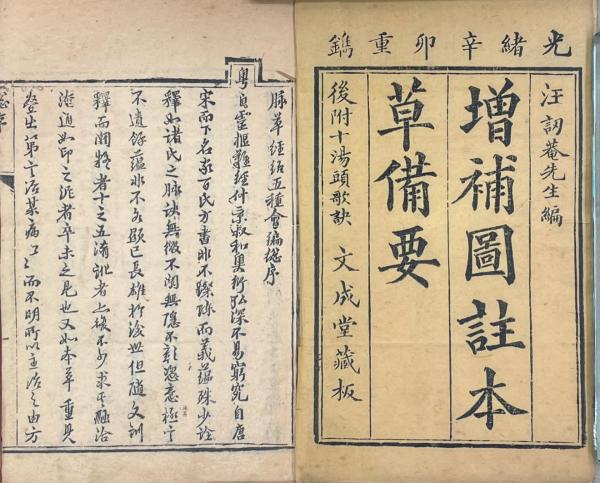 光緒辛卯重鐫
汪訒菴先生編
增補圖註本
草備要
後附十湯頭歌訣 文成堂藏板
脉草經絡五種會編總序
粵自靈樞難經仲景叔和奧衍弘深不易窮究自唐
宋而下名家百氏方書非不疊疎而義蘊殊少詮
釋如諸氏之脉訣無微不闡無隱不彰恣意極言
不遺餘蘊非不各顯己長雄於後世但隨文訓
釋而闕疑者十之五淆訛者亦復不少求其融洽
證通如印之泥者卒未之見也又如本草重其
登出某第言治某病而不明所以主治之由方